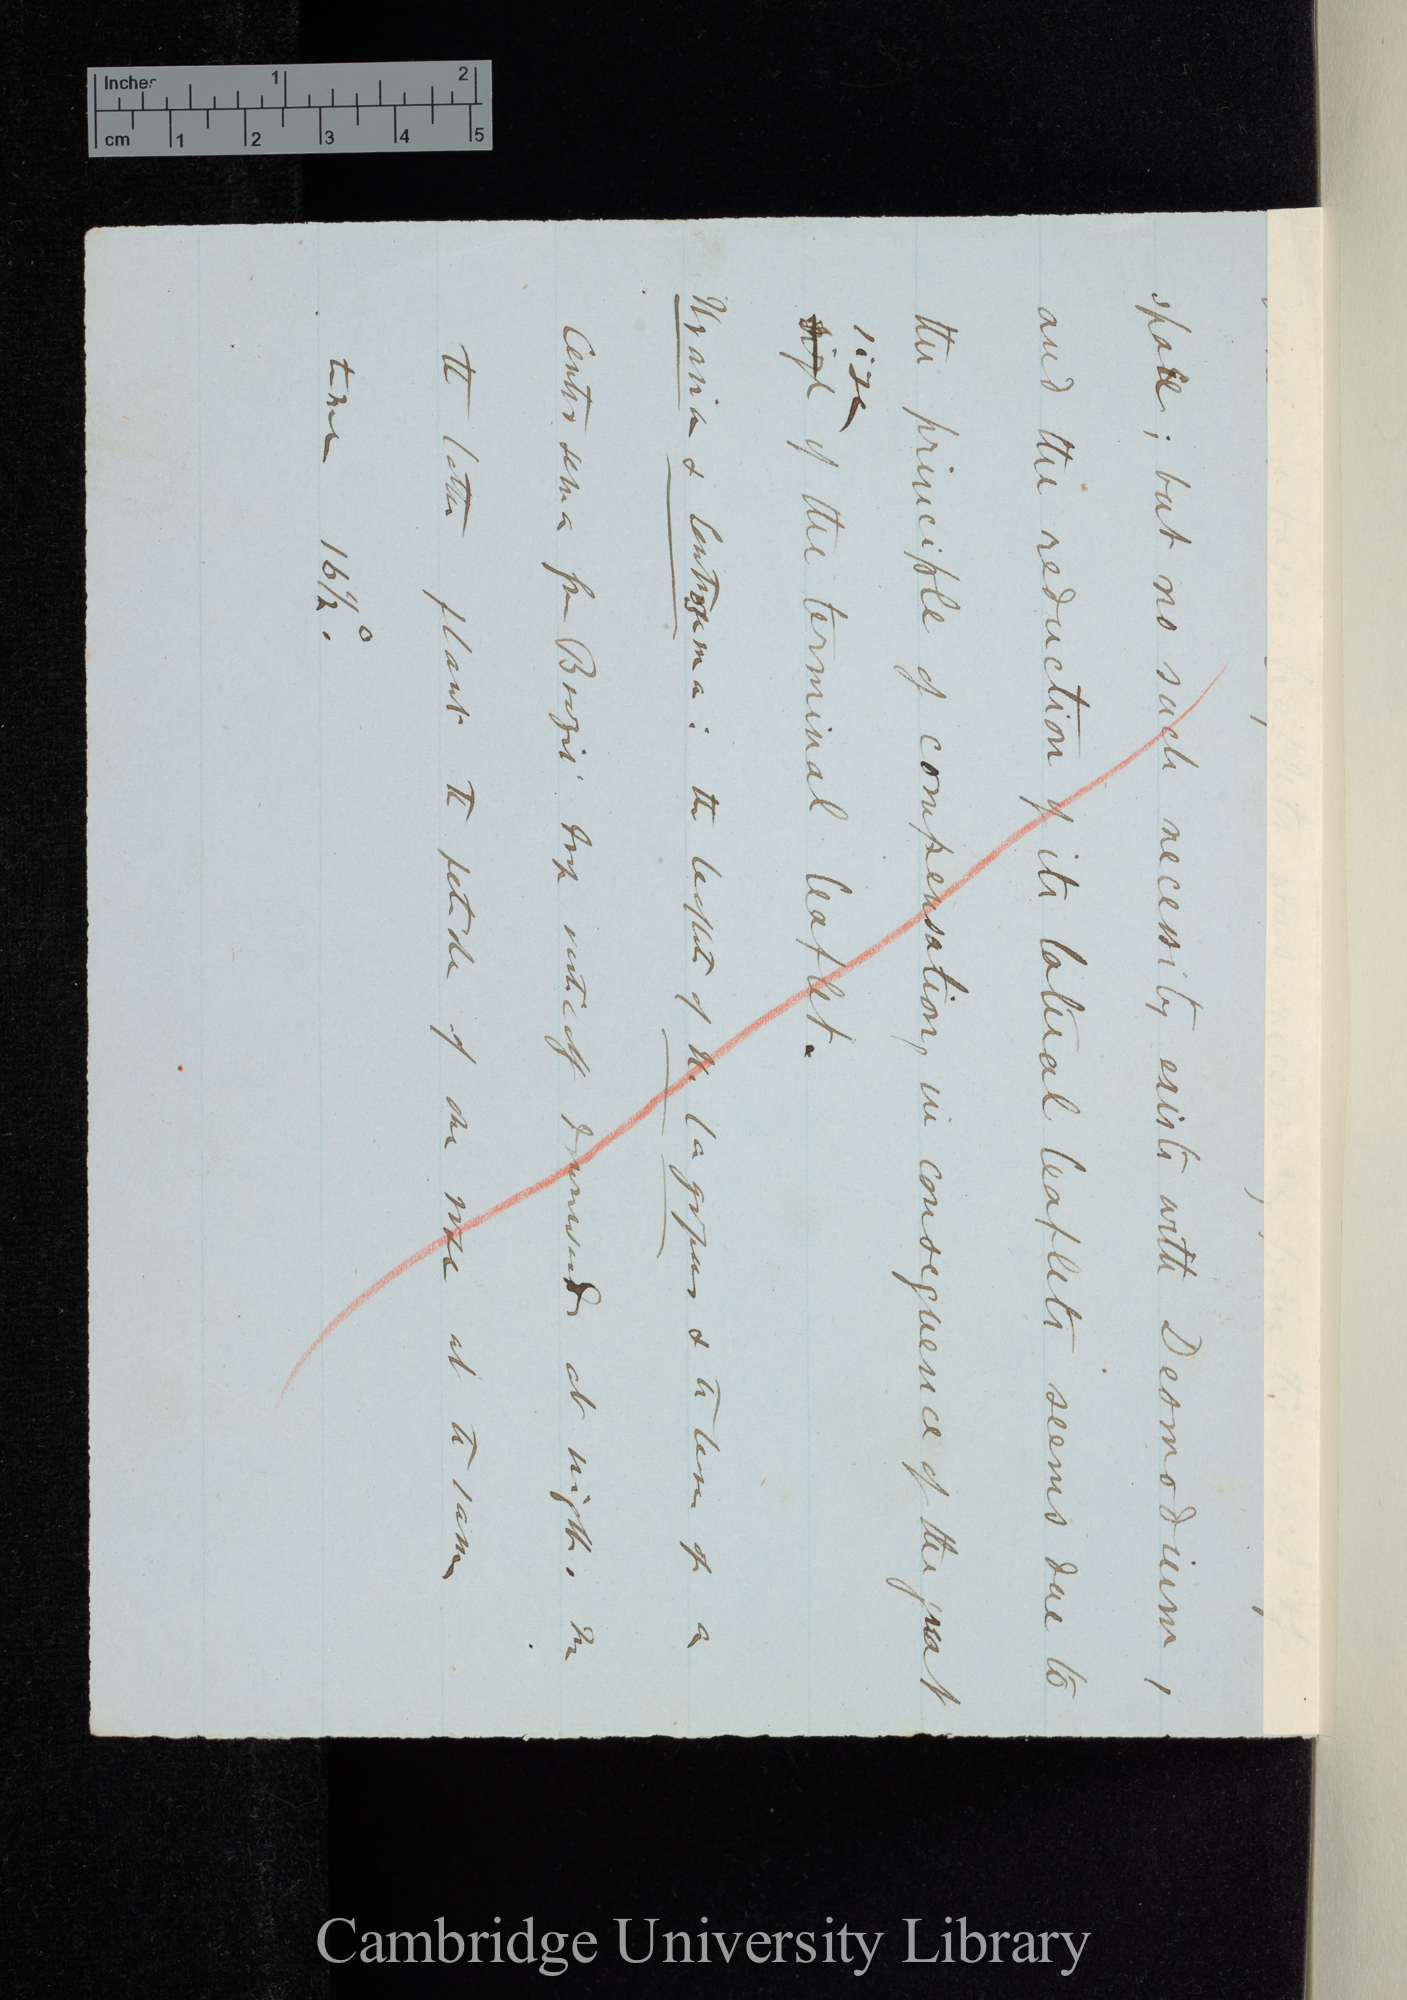 Inches 1 2
cm 1 2 3 4 5
space; but no such necessity exists with Desmodium,
and the reduction of its lateral leaflets seems due to
the principle of compensation, in consequence of the great
size
of the terminal leaflet.
Uraria & Centrosema: the leaflets of U. lagopus & the leaves of a
Centrosema from Brazil sink vertically downwards at night. In
the latter plant the petiole of one rose at the same
time 16 1/2°.
Cambridge University Library